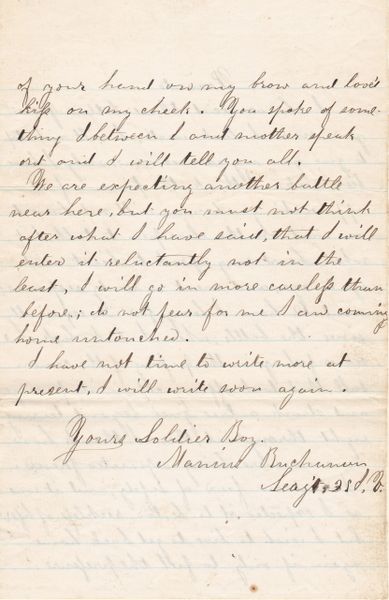 of your hand on my brow and love's
kiss on my cheek. You spoke of some-
thing between I and mother speak
out and I will tell you all.
We are expecting another battle
near here, but you must not think
after what I have said, that I will
enter it reluctantly not in the
least, I will go in more careless than
before; do not fear for me I am coming
home untouched.
I have not time to write more at
present, I will write soon again.
Yours Soldier Boy.
Buchanan